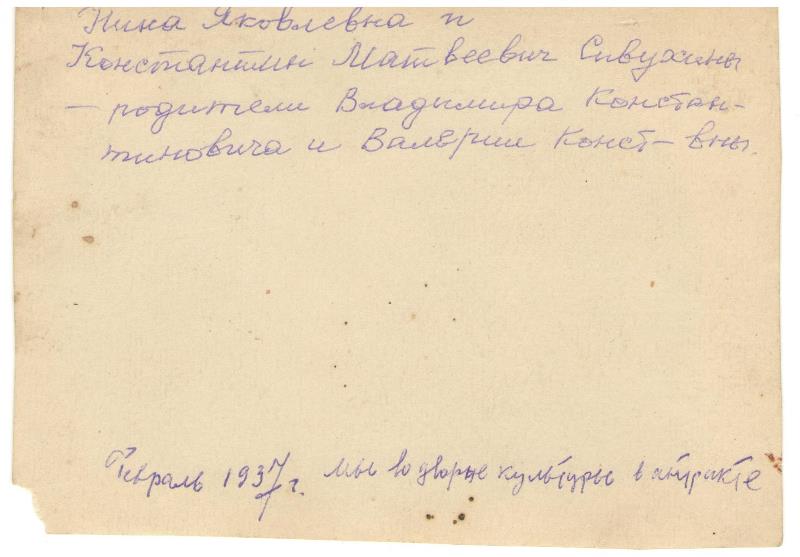 Нина Яковлевна и
Константин Матвеевич Сивухины
— родители Владимира Констан-
тиновича и Валерии Конст-вны.
Февраль 1937 г. мы во дворце культуры в антракте